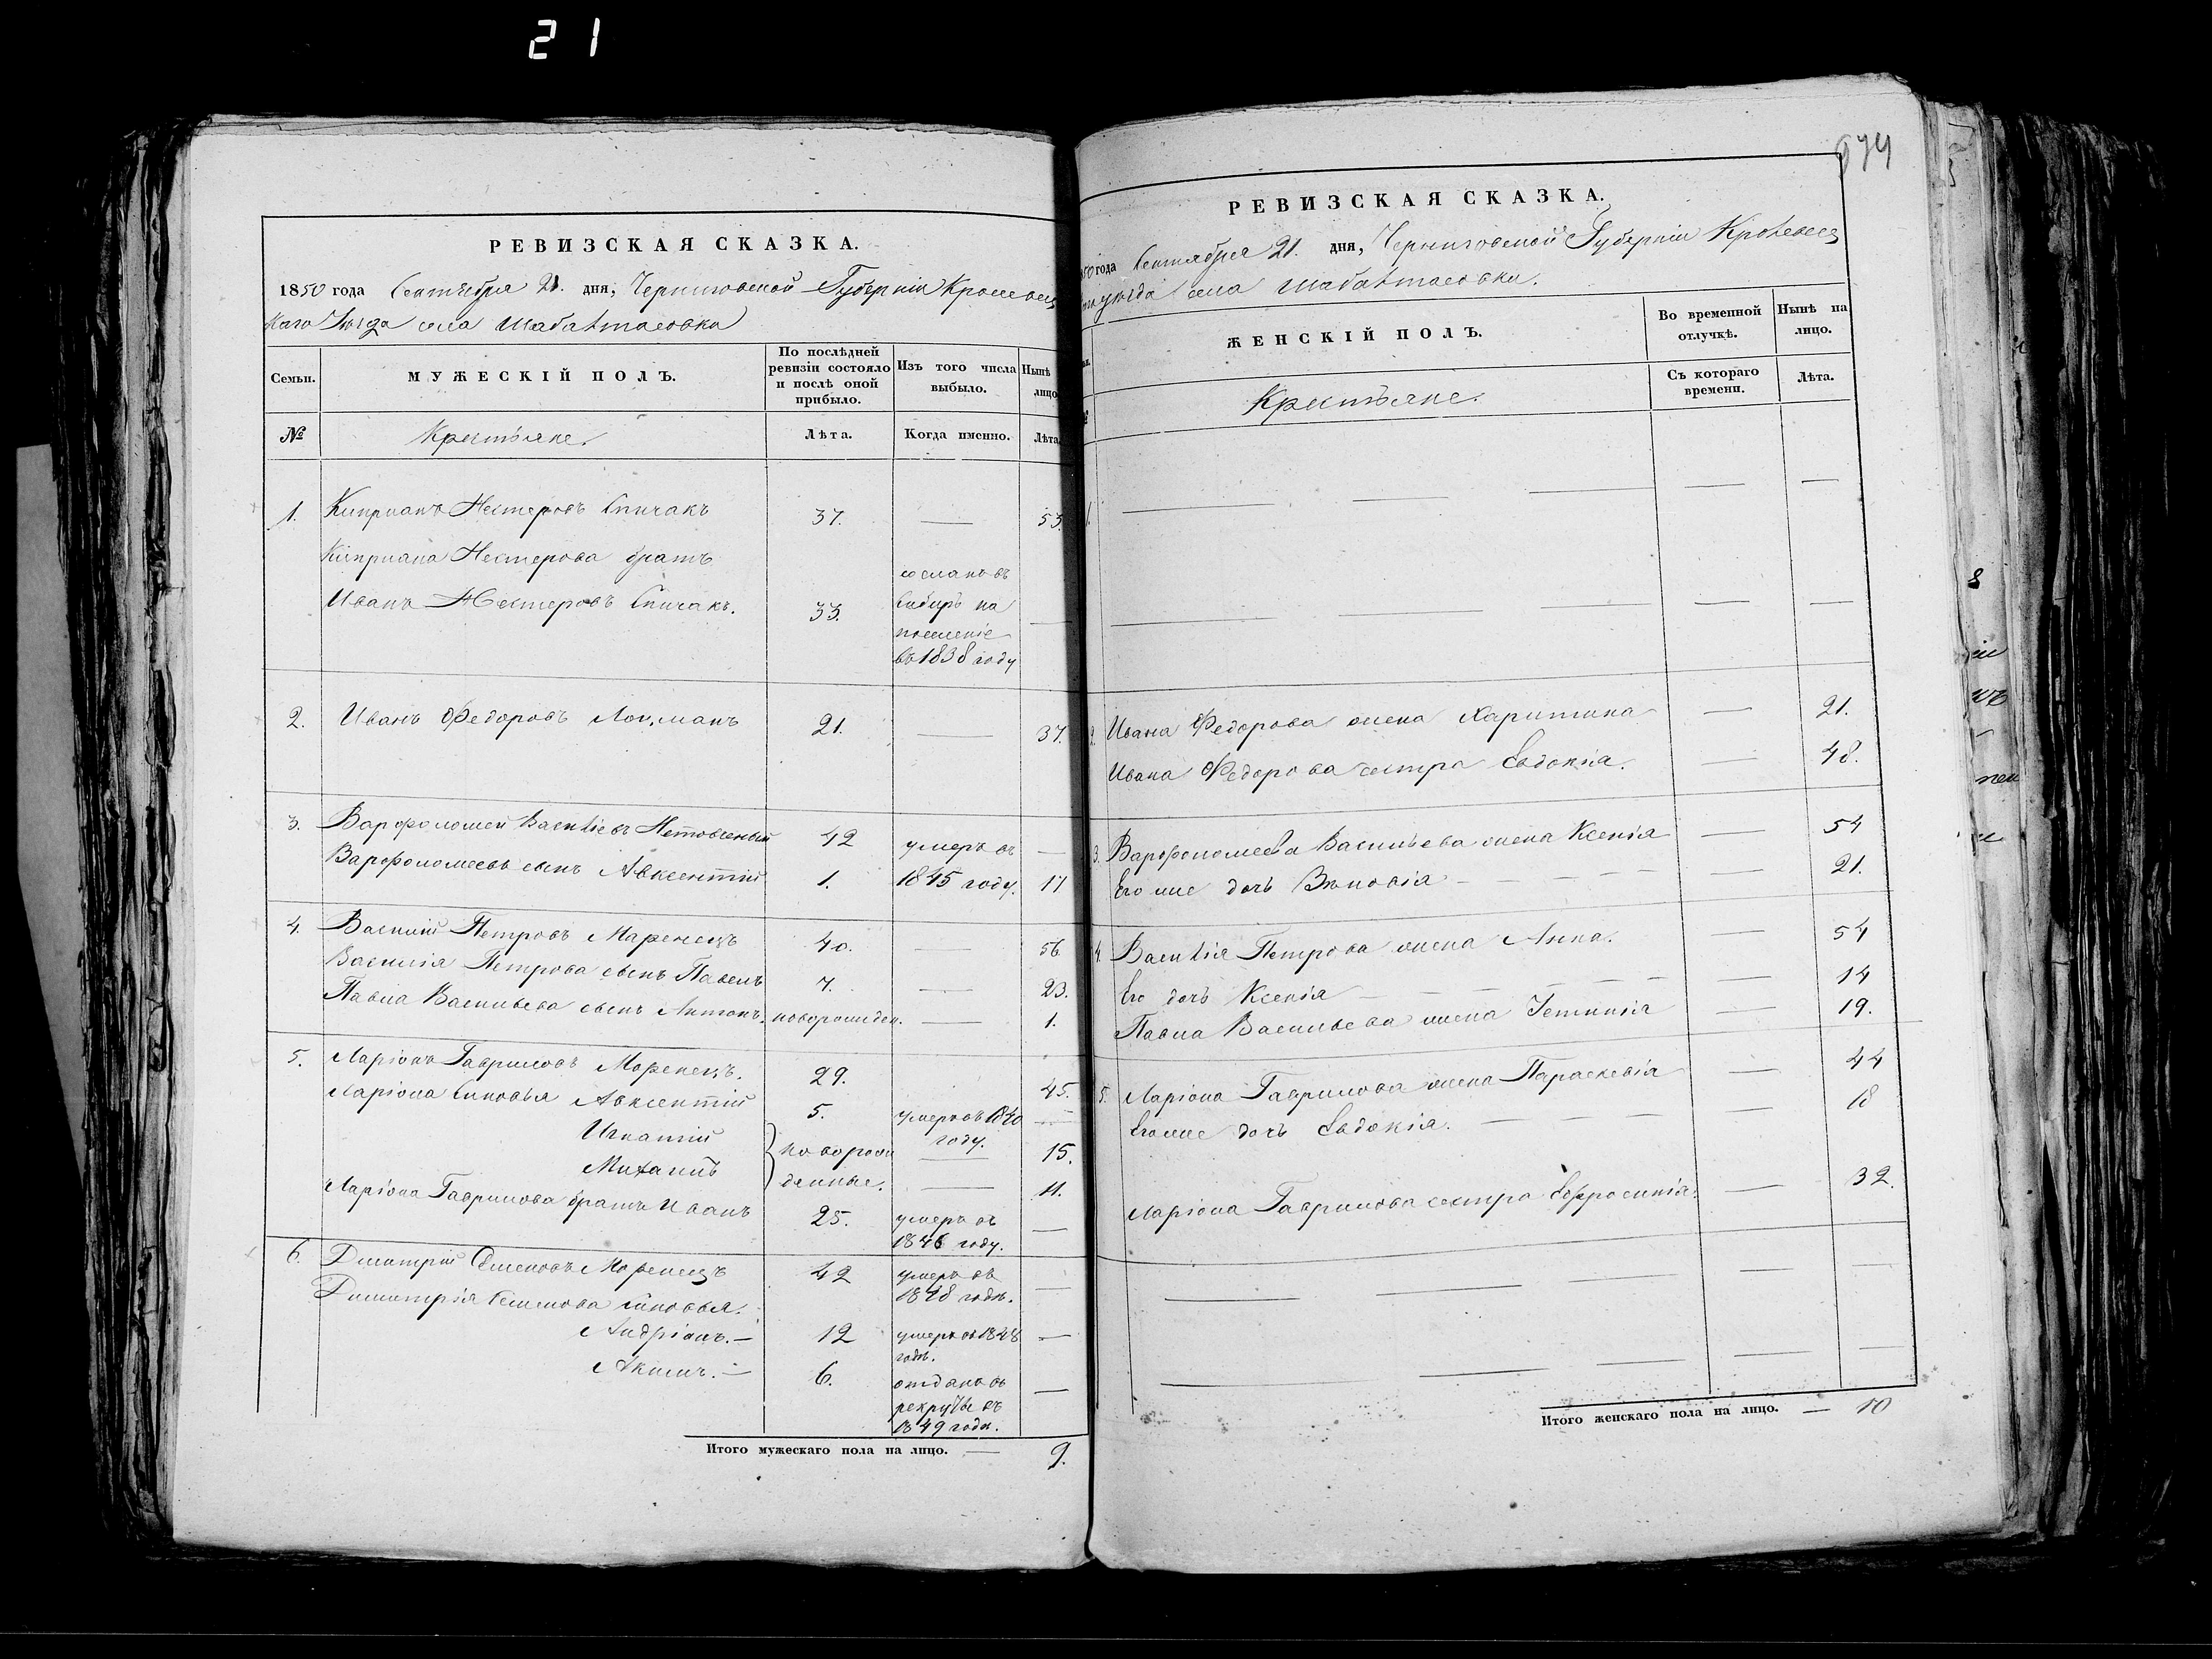 21
РЕВИЗСКАЯ СКАЗКА.
1850 года Сентября 21. дня, Черниговской Губерніи Кролевец
каго Уѣзда села Шабалтасовки
Семьи.
МУЖЕСКІЙ ПОЛЪ.
По послѣдней ревизіи состояло и послѣ оной прибыло.
Изъ того числа выбыло.
Нынѣ лицо
№
Крестьяне.
Лѣта.
Когда именно.
Лѣта
1. Кипріанъ Нестеровъ Спичакъ 37. — 53.
Кипріана Нестерова братъ
Иванъ Нестеровъ Спичакъ. 33. сосланъ въ
Сибирь на
поселеніе
въ 1838 году —
2. Иванъ Федоровъ 21. — 37.
3. Варфоломей Васильевъ 42 умеръ въ —
Варфоломеевъ сынъ Авксентій 1. 1845 году. 17
4. Василий Петровъ Маренецъ 40. — 56
Василія Петрова сынъ Павелъ 7. — 23.
Павла Васильева сынъ Антонъ. новорожден. — 1.
5. Ларіонъ Гавриловъ Моренецъ. 29. 45.
Ларіона Синовья Авксентій 5. умеръ въ 1840 —
году.
Игнатій } новорож — 15.
Михаилъ денные. — 11.
Ларіона Гаврилова братъ Иванъ 25. умеръ въ —
1846 году.
6. Дмитрій Семеновъ Моренецъ 42 умеръ въ —
1848 годѣ.
Димитрія Семенова синовья.
Андріанъ. — 12 умеръ въ 1848 —
годѣ.
Акимъ. — 6. отданъ въ —
рекруты въ
1849 годѣ.
Итого мужескаго пола на лицо. — 9.
674
РЕВИЗСКАЯ СКАЗКА.
50 года Сентября 21. дня, Черниговской Губерніи Кролевец
уѣзда села Шабалтасовки.
ЖЕНСКІЙ ПОЛЪ.
Во временной отлучкѣ.
Нынѣ на лицо.
Крестьяне.
Съ котораго времени.
Лѣта.
1. — — — — —
— — — — —
2. Ивана Федорова жена Харитина — 21.
Ивана Федорова сестра Евдокія. — 48.
3. Варфоломея Васильева жена Ксенія — 54
Его же дочь — 21.
4. Василія Петрова жена Анна. — 54
Его дочь Ксенія — 14
Павла Васильева жена — 19.
5. Ларіона Гаврилова жена Параскевія — 44
Его же дочь Евдокія. — 18
Ларіона Гаврилова сестра Ефросинія. — 32.
— — — — —
— — — — —
Итого женскаго пола на лицо. — 10